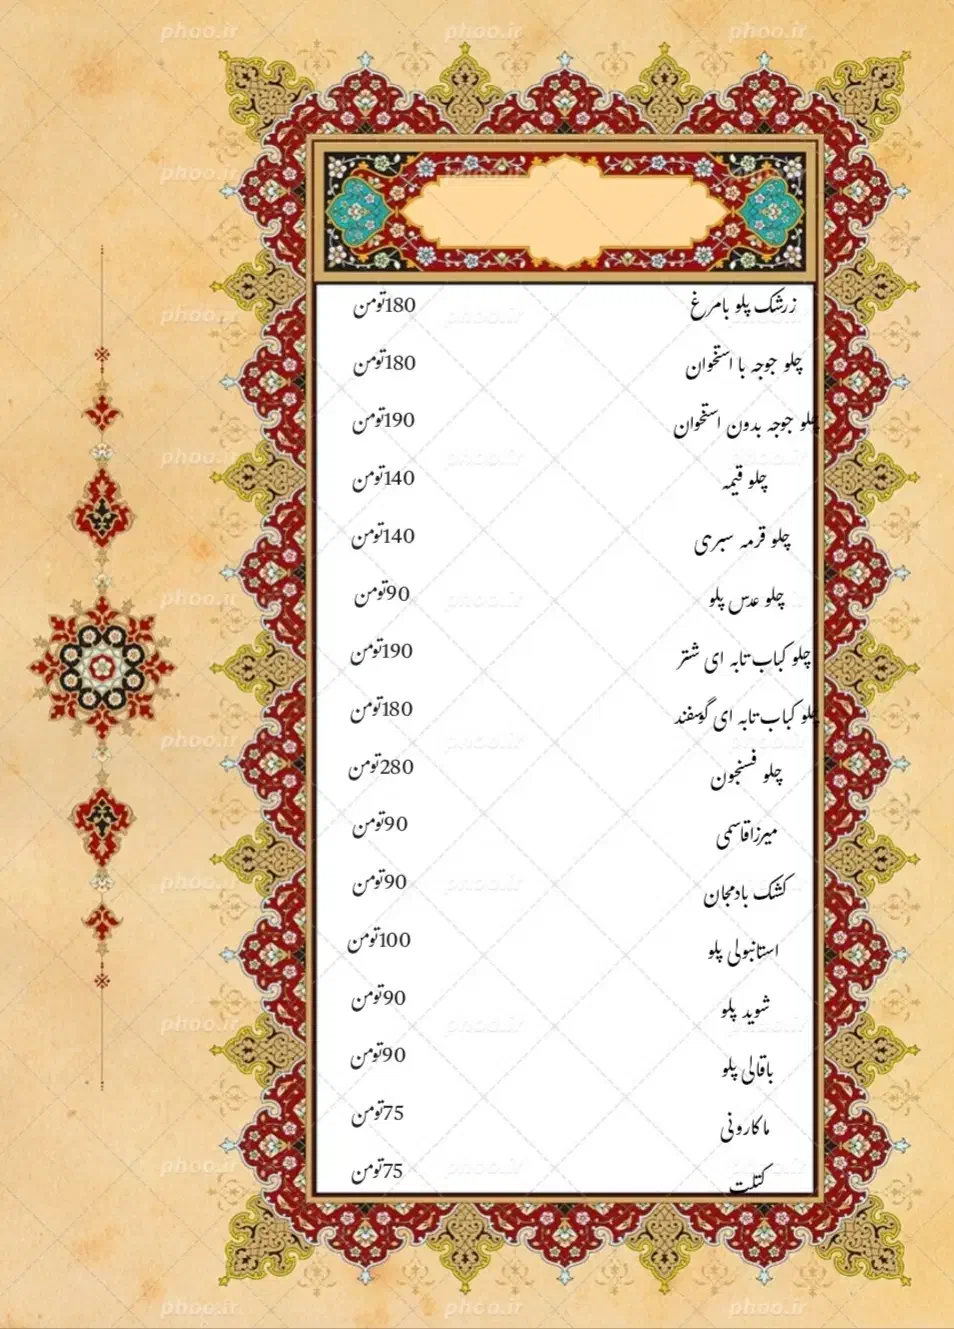 زرشک پلو بامرغ 180تومن
چلو جوجه با استخوان 180تومن
چلو جوجه بدون استخوان 190تومن
چلو قیمه 140تومن
چلو قرمه سبری 140تومن
چلو عدس پلو 90تومن
چلو کباب تابه ای شتر 190تومن
چلو کباب تابه ای گوسفند 180تومن
چلو فسنجون 280تومن
میرزاقاسمی 90تومن
کشک بادمجان 90تومن
استانبولی پلو 100تومن
شوید پلو 90تومن
باقالی پلو 90تومن
ماکارونی 75تومن
کتلت 75تومن
phoo.ir